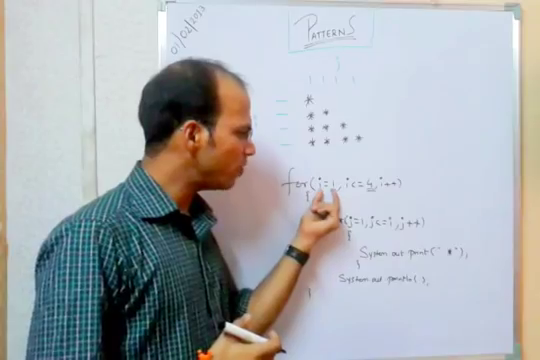 01/02/2023
PATTERNS
*
* *
* * *
* * * *
for(i=1, i<=4, i++)
{
(j=1, j<=i, j++)
{
System out print(" * "),
}
System out println( ),
}